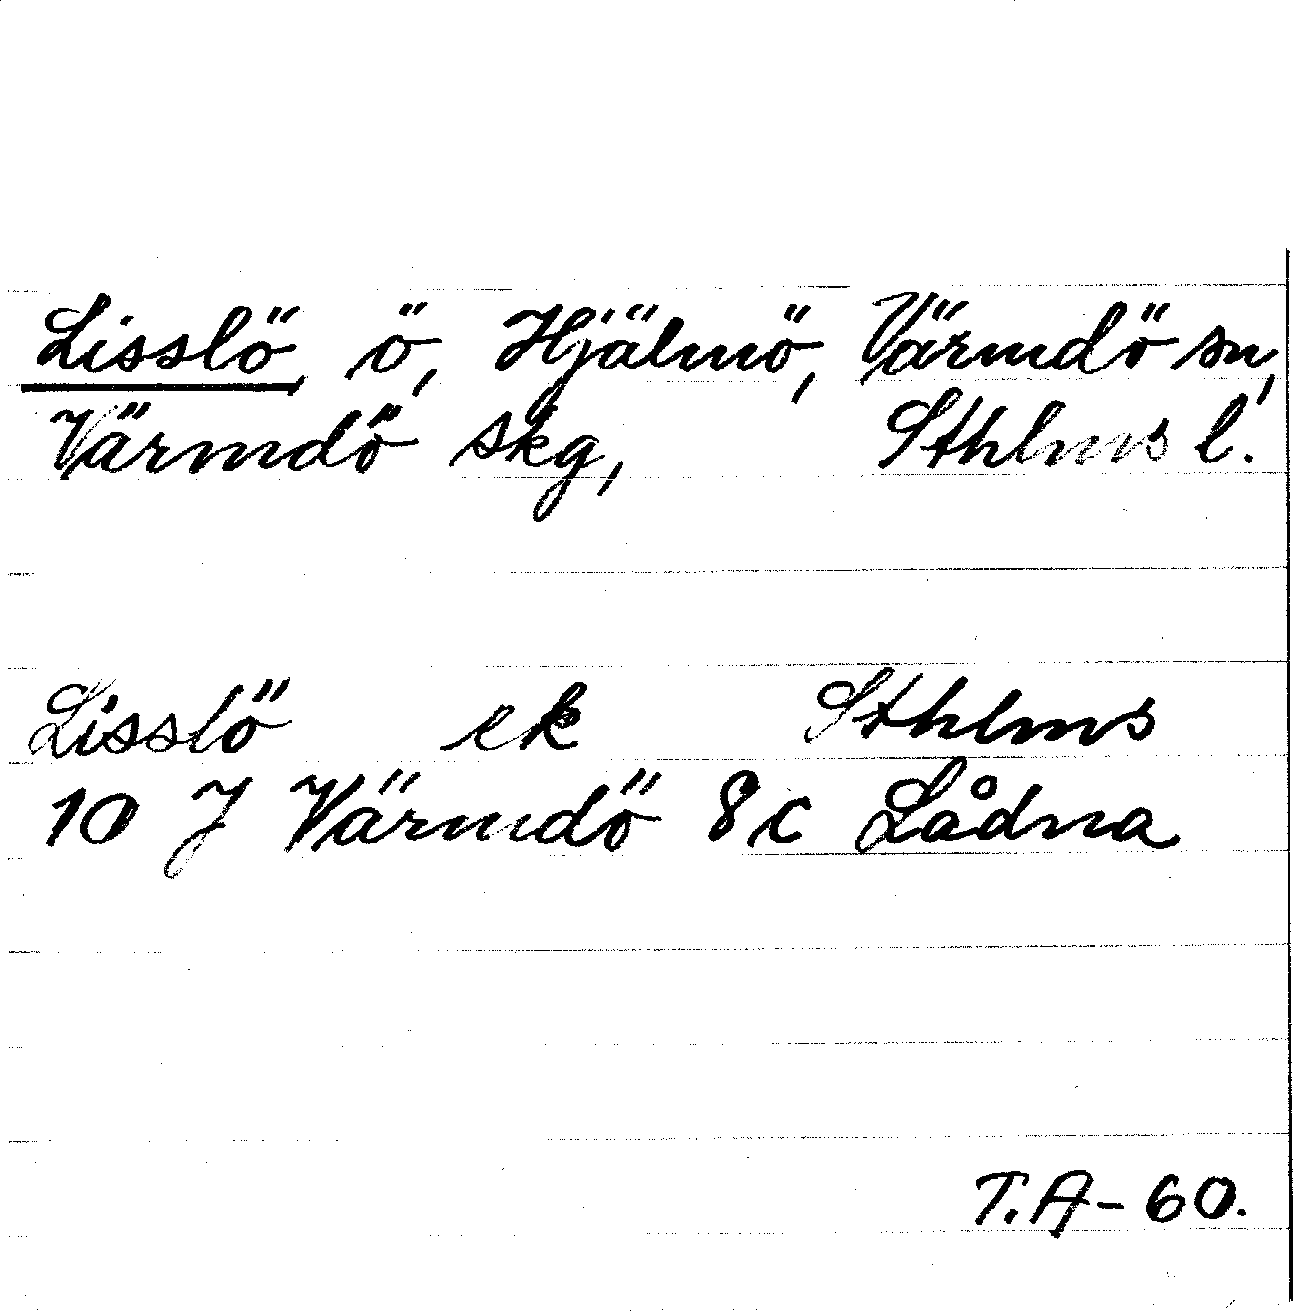 Lisslö, ö, Hjälmö, Värmdö sn,
Värmdö skg, Sthlms l.
Lisslö ek Sthlms
10 J Värmdö 8c Lådna
T.A-60.